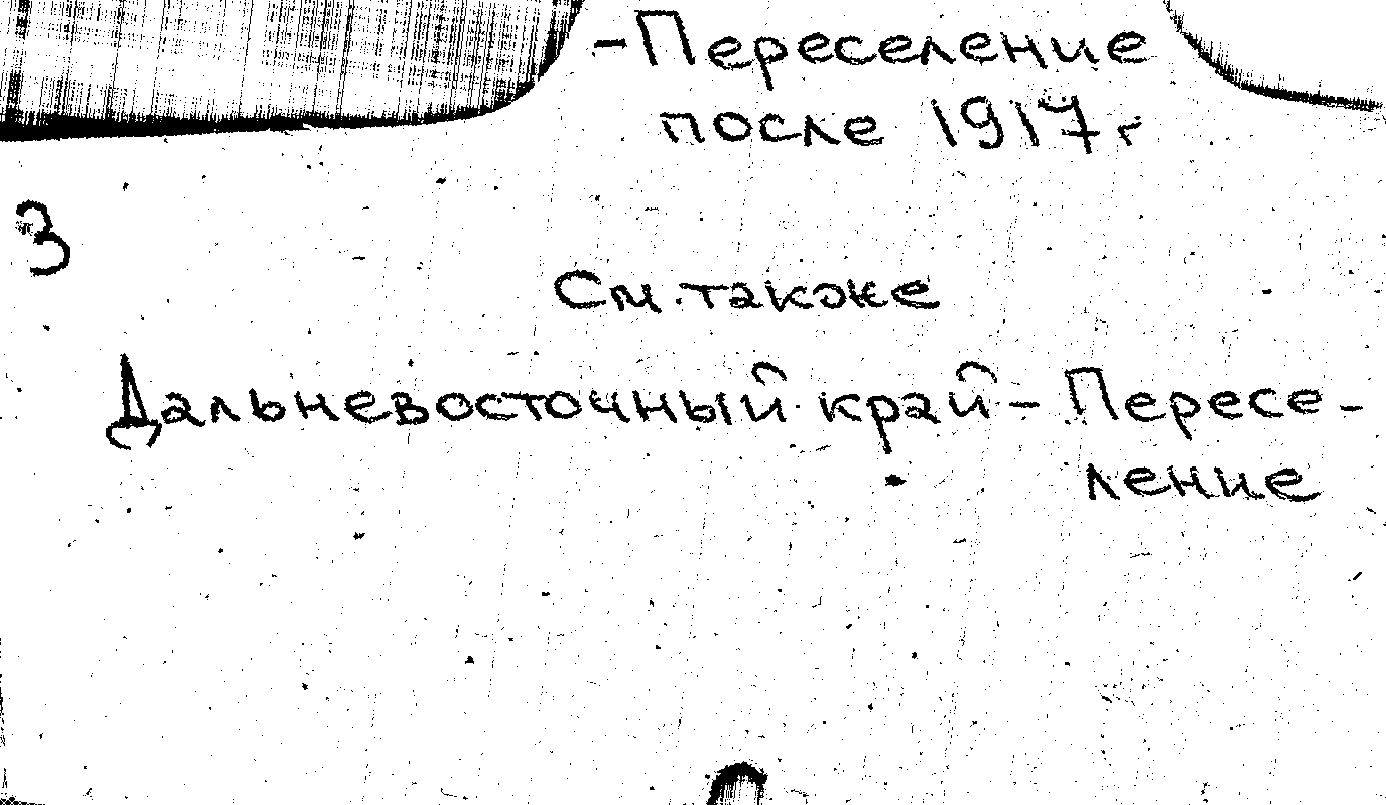 -Переселение
после 1917 г
3
См. также
Дальневосточный край - Пересе-
ление